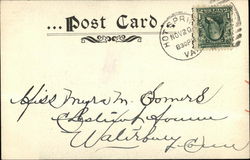 ...Post Card...
HOT SPRINGS
NOV 20
VA
Miss Myra M. Somers
Chestnut Avenue
Waterbury
Conn